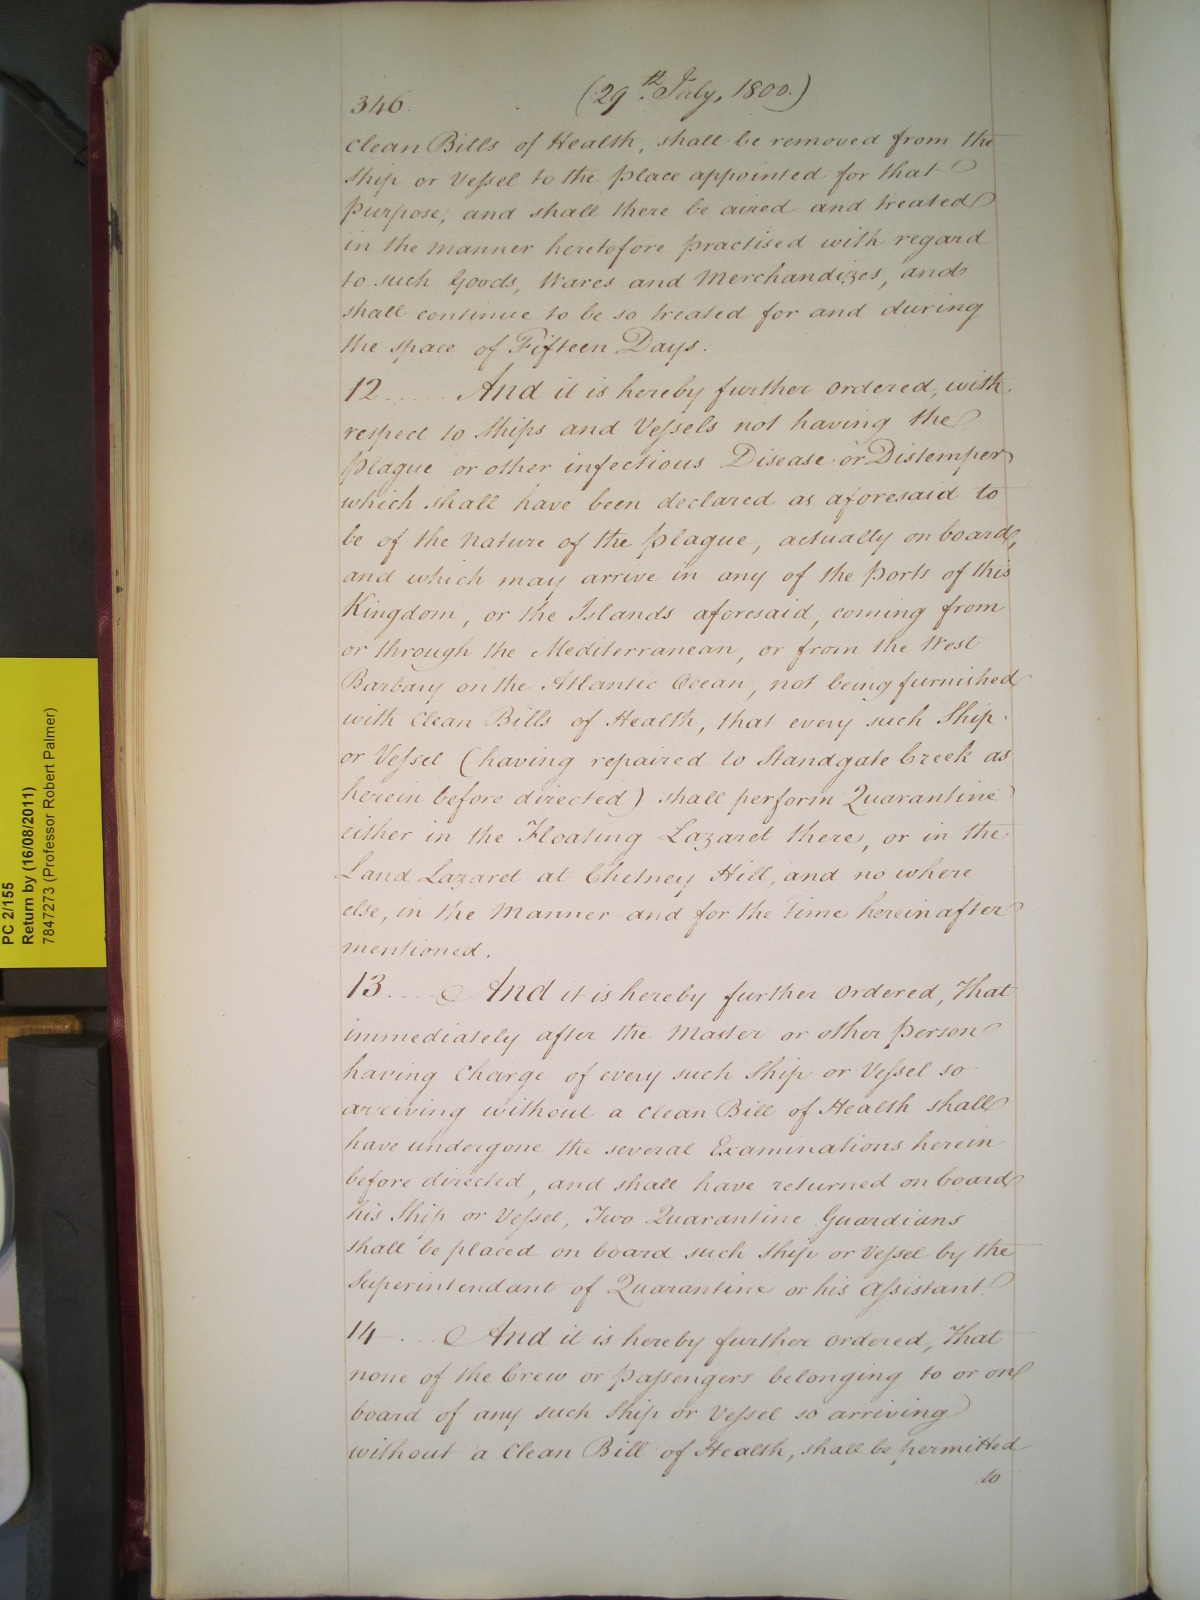 346.
(29th. July, 1800.)
clean Bills of Health, shall be removed from the
Ship or Vessel to the place appointed for that
purpose, and shall there be aired and treated
in the manner heretofore practised with regard
to such Goods, Wares and Merchandizes, and
shall continue to be so treated for and during
the space of Fifteen Days.
12..... And it is hereby further ordered, with
respect to Ships and Vessels not having the
plague or other infectious Disease or Distemper
which shall have been declared as aforesaid to
be of the nature of the plague, actually on board,
and which may arrive in any of the Ports of this
Kingdom, or the Islands aforesaid, coming from
or through the Mediterranean, or from the West
Barbary on the Atlantic Ocean, not being furnished
with clean Bills of Health, that every such Ship
or Vessel (having repaired to Standgate Creek as
herein before directed) shall perform Quarantine
either in the Floating Lazaret there, or in the
Land Lazaret at Chetney Hill, and no where
else, in the Manner and for the time herein after
mentioned.
13.... And it is hereby further ordered, That
immediately after the Master or other Person
having Charge of every such Ship or Vessel so
arriving without a clean Bill of Health shall
have undergone the several Examinations herein
before directed, and shall have returned on board
his Ship or Vessel, Two Quarantine Guardians
shall be placed on board such Ship or Vessel by the
Superintendant of Quarantine or his Assistant.
14.... And it is hereby further ordered, That
none of the Crew or passengers belonging to or on
board of any such Ship or Vessel so arriving
without a Clean Bill of Health, shall be permitted
to
PC 2/155
Return by (16/08/2011)
7847273 (Professor Robert Palmer)